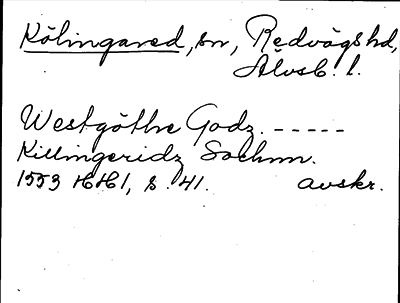 Kölingared, sn, Redvägs hd,
Älvsb. l.
Westgöthe Godz. -----
Killingeridz Sochnn.
1553 HH1, s. 41. avskr.